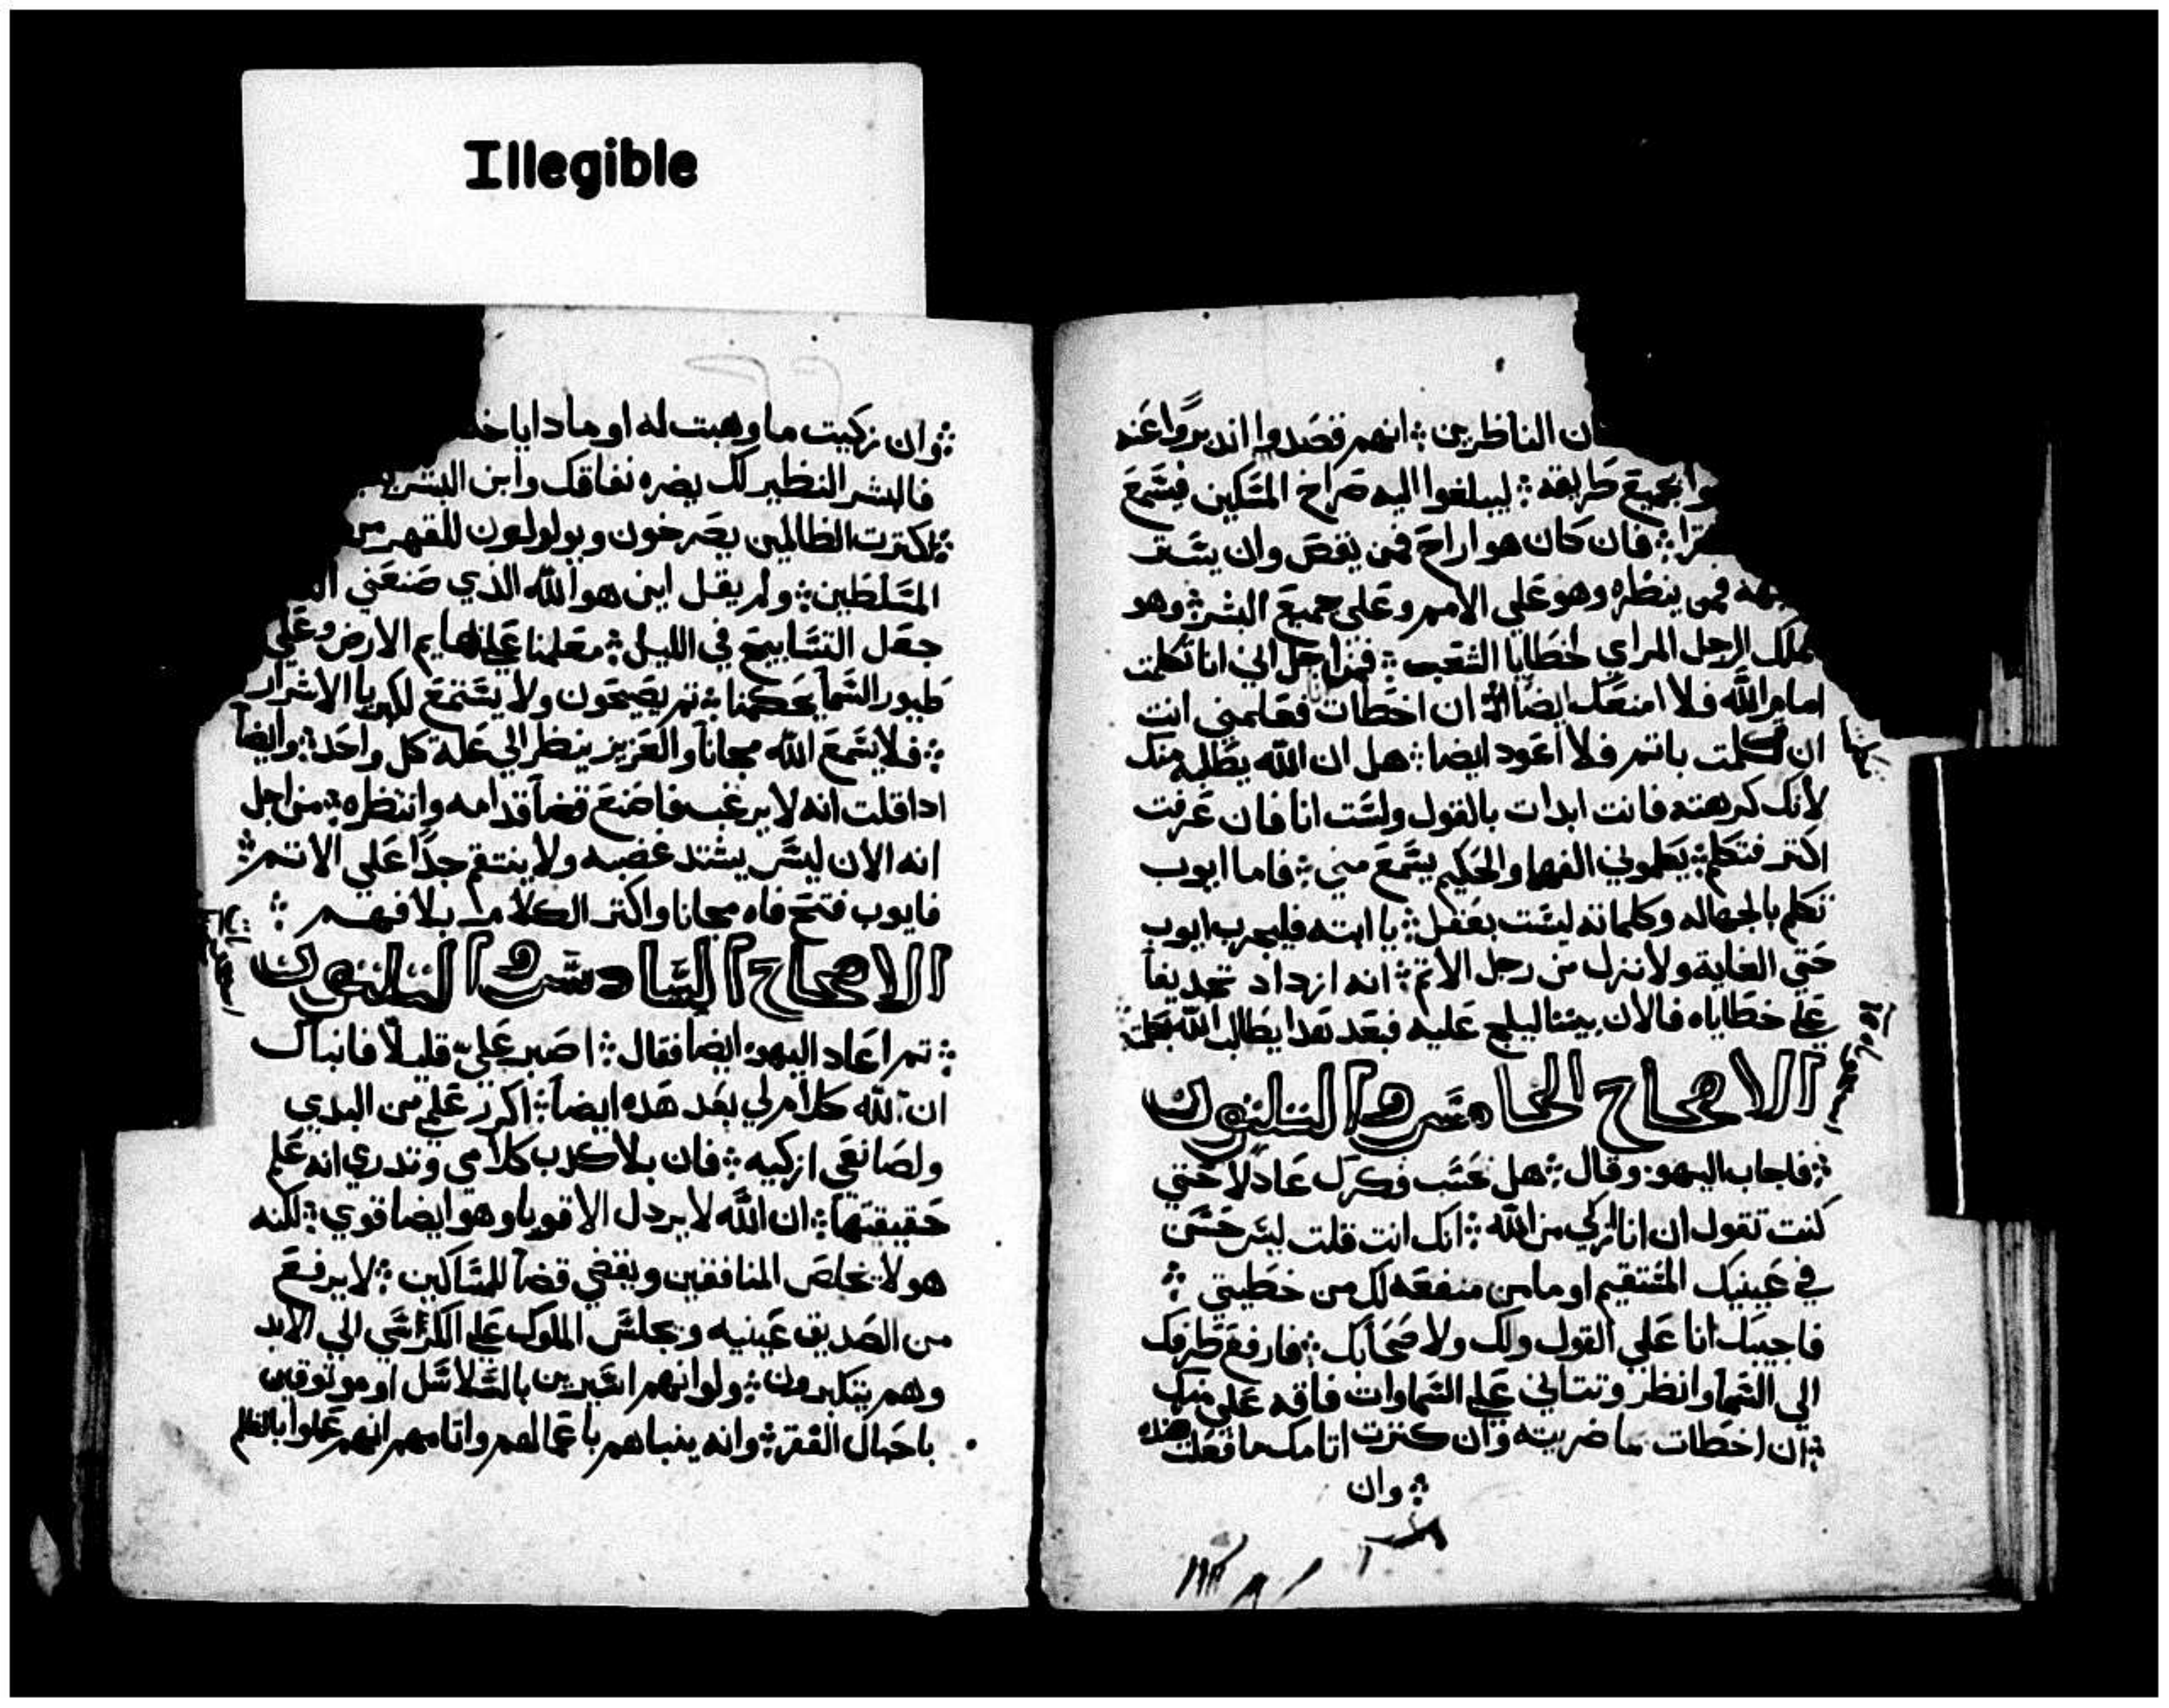 Illegible
ن الناظرين ؞ انهم قصدوا ان يبرموا عنه
وا بجميع طرايقه ؞ ليبلغوا اليه صراخ المساكين فيسمع
؞ فان كان هو اراح فمن ينقض وان يستر
جهه فمن ينظره وهو على الامم وعلى جميع البشر ؞ وهو
يملك الرجل المراي لخطايا الشعب ؞ فمن اجل اني انا تكلمت
امام الله فلا امنعك ايضا ؞ ان اخطات فعلمني انت
ان تكلمت باتم فلا اعود ايضا ؞ هل ان الله يطلبه منك
لانك كرهته فانت ابدات بالقول ولست انا فان عرفت
اكتر فتكلم ؞ يعلموني الفهما والحكيم يسمع مني ؞ فاما ايوب
تكلم بالجهاله وكلماته ليست بعقل ؞ يا ابته فليجرب ايوب
حتي الغاية ولا تنزل من رجل الاتم ؞ انه ازداد تجديفا
علي خطاياه فالان بيننا ليلجم عليه فبعد هدا يطالب الله
الاصحاح الخامس والتلتون
؞ فاجاب اليهو وقال ؞ هل تحسب فكرك عادلا حتي
كنت تقول ان انا ازكي من الله ؞ انك انت قلت ليس حسن
في عينيك المستقيم او ما من منفعه لك من خطيتي ؞
فاجيبك انا علي القول ولك ولاصحابك ؞ فارفع طرفك
الي السما وانظر وتتالي علي السماوات فاقه علي منك
؞ ان اخطات ما ضريته وان كترت اتامك ما فعلت هذه
؞ وان
؞ وان زكيت ما وهبت له او مادا ياخد
فالبشر النظير لك يضره نفاقك وابن البشر
؞ لكترت الظالمين يصرخون ويولولون للقهر من
المتسلطين ؞ ولم يقل اين هو الله الذي صنعني الد
جعل التسابيح في الليل ؞ معلمنا علي بهايم الارض وعلي
طيور السما يحكمنا ؞ تم يصيحون ولا يستمع لكبريا الاشرار
؞ فلا يسمع الله مجانا والعزيز ينظر الي علة كل واحد ؞ وايضا
ادا قلت انه لا يرغب فاضع قضا قدامه وانتظره ؞ من اجل
انه الان ليس يشتد غضبه ولا ينتقم جدا علي الاتم ؞
فايوب فتح فاه مجانا واكتر الكلام بلا فهم ؞
الاصحاح السادس والتلتون
؞ تم اعاد اليهو ايضا فقال ؞ اصبر علي قليلا فانباك
ان لله كلام لي بعد هده ايضا ؞ اكرر علمي من البدي
ولصانعي ازكيه ؞ فان بلا كدب كلامي وتدري انه علم
حقيقتها ؞ ان الله لا يردل الاقويا وهو ايضا قوي ؞ لكنه
هو لا يخلص المنافقين ويقضي قضا للمساكين ؞ لا يرفع
من الصديق عينيه ويجلس الملوك علي الكراسي الي الابد
وهم يتكبرون ؞ ولو انهم اسيرين بالسلاسل او موتوقين
باحبال الفقر ؞ وانه ينباهم باعمالهم واتامهم انهم عملوا بالظلم